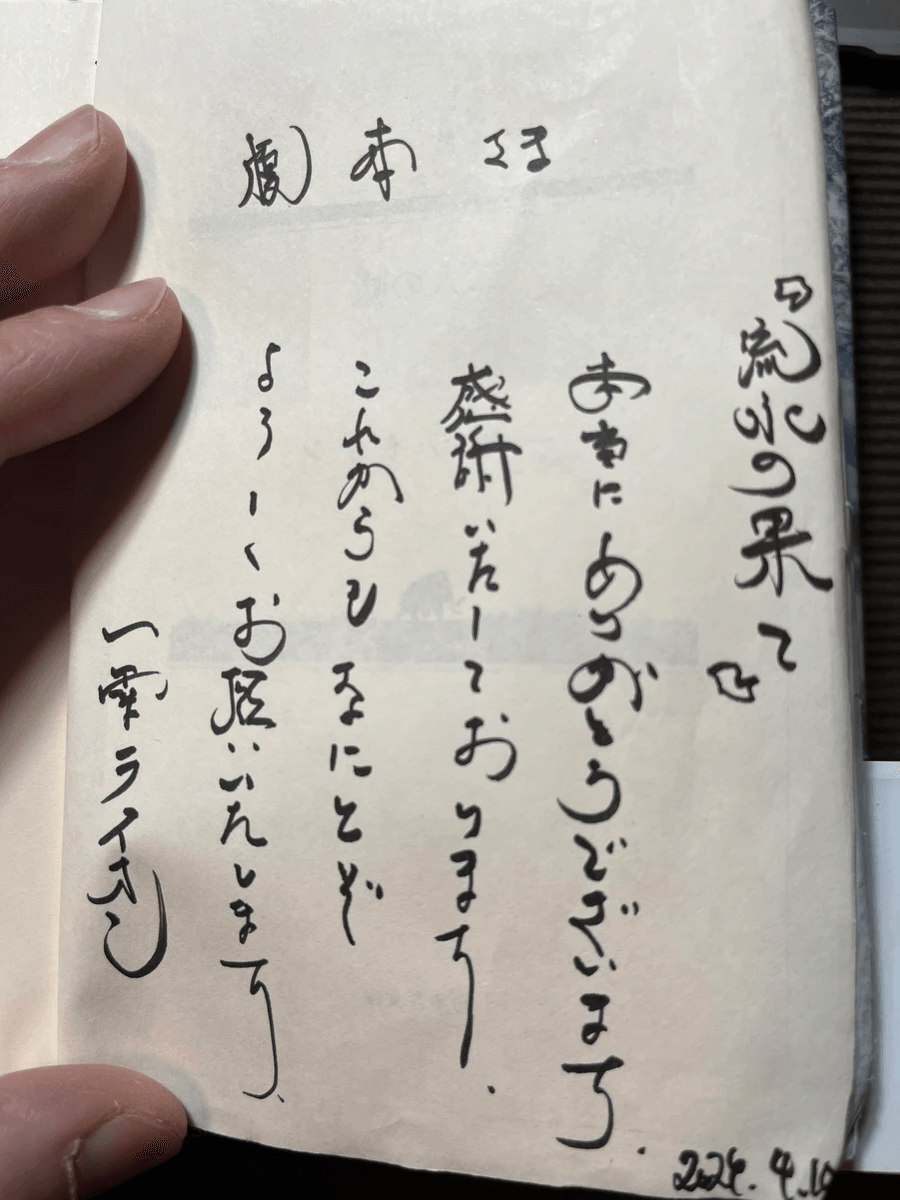 本 さま
『流氷の果て』
本当にありがとうございます.
感謝いたしております.
これからもなにとぞ
よろしくお願いいたします.
一雫ライオン